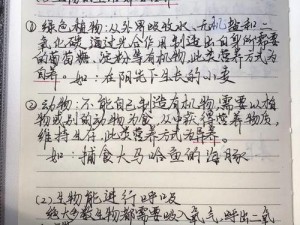 ①绿色植物:从外界吸收水、无机盐和二
氧化碳,通过光合作用制造出自身所需要
的葡萄糖,淀粉等有机物,此类营养方式为
自养。如:在阳光下生长的小麦
②动物:不能自己制造有机物,需要以植
物或别的动物为食,从中获得营养物质,
维持生存,此类营养方式为异养。
如:捕食大马哈鱼的海豚
(2)生物能进行呼吸
绝大多数生物都需要吸入氧气,呼出二氧